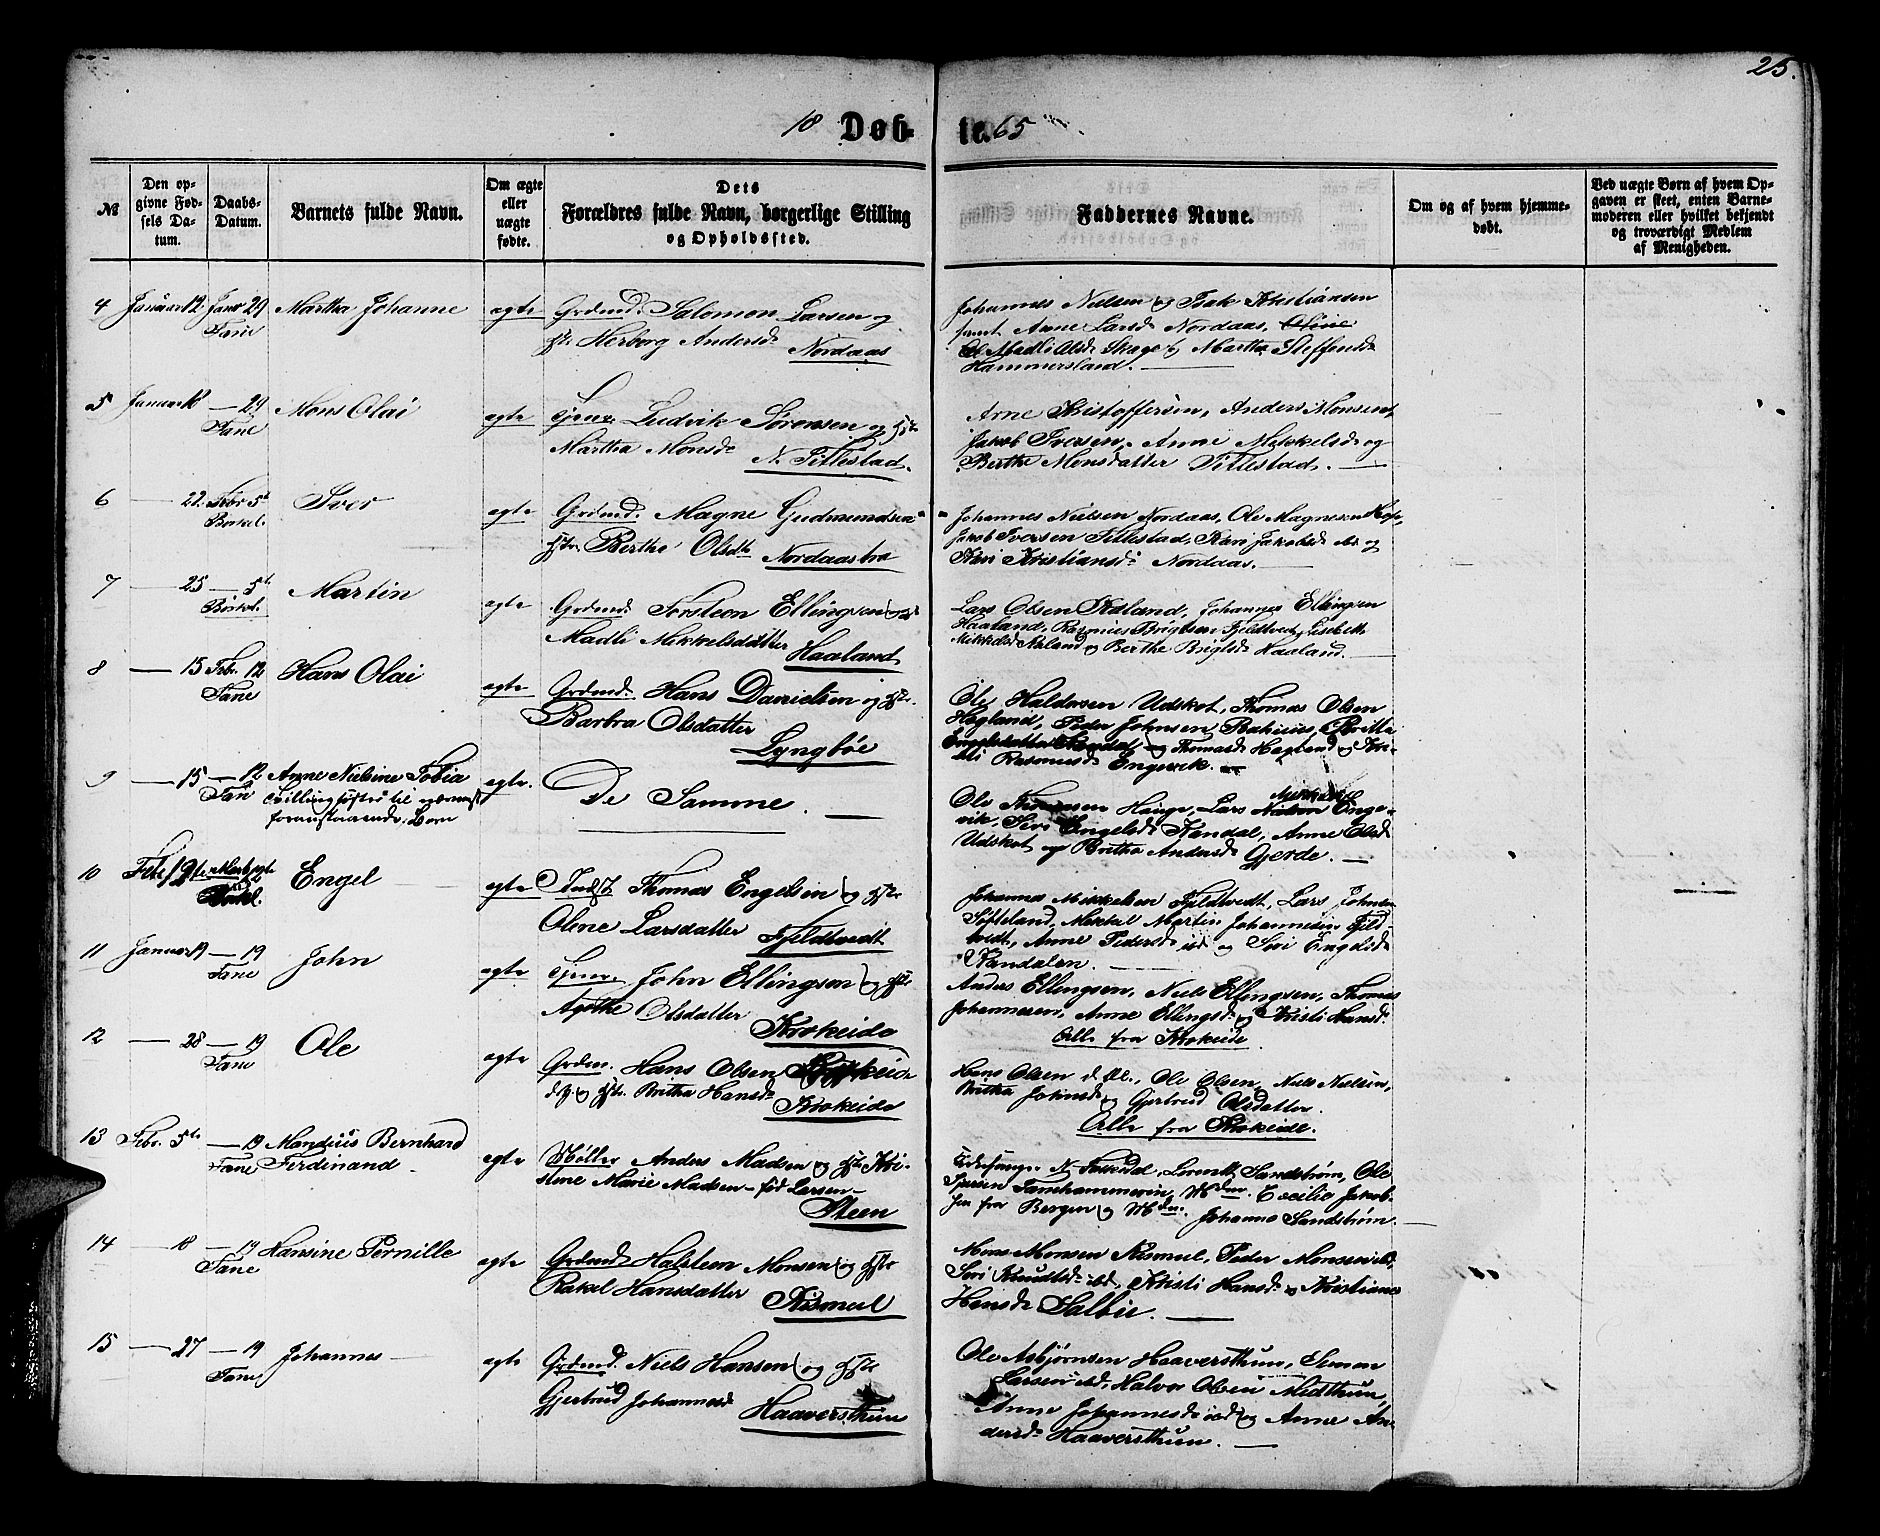 25.
18 Døb- te. 65
№
Den op-
givne Fød-
sels Da-
tum.
Daabs-
Datum.
Barnets fulde Navn.
Om ægte
eller
uægte
fødte.
Dets
Forældres fulde Navn, borgerlige Stilling
og Opholdssted.
Faddernes Navne.
Om og af hvem hjemme-
døbt.
Ved uægte Børn af hvem Op-
gaven er skeet, enten Barne-
moderen eller hvilket bekjendt
og troværdigt Medlem
af Menigheden.
4 Januar 12. Janr 29 Martha Johanne ægte Grdmd. Salomon Larsen og
Fane Herborg Andersd.
Nordaas
Johannes Nielsen og Isak Kristiansen
samt Anne Larsd. Nordaas, Oline
Madli Olsd. Skage og Martha Steffensd.
Hammersland.
5 Januar — 29 Mons Olai ægte Ludvik Sørensen og
Fane Martha Monsd.
N. Tittestad.
Arne Kristoffersen, Anders Monsen
Jakob Iversen, Anne Mikkelsd. og
Berthe Monsdatter Tittestad.
6 — 22. Febr 5t Iver ægte Grdmd. Magne Gudmundsen
Birkel. Berthe Olsdtr.
Nordaastræ
Johannes Nielsen Nordaas, Ole Magnesen
Jakob Iversen Tittestad, Kari Jakobsd. og
Kari Kristiansd. Nordaas.
7 — 25 — 5t Martin ægte Grdmd. Torsteen Ellingsen og
Birkel. Madli Mikkelsdatter
Haaland
Lars Olsen Aaland, Johannes Ellingsen
Haaland, Rasmus Brigtsen Fjeldtvedt, Lisebeth
Mikkelsd. Aaland og Berthe Brigtsd. Haaland.
8 — 15 Febr. 12 Hans Olai ægte Grdmd. Hans Danielsen og
Fane Barbra Olsdatter
Lyngbøe
Ole Haldorsen Udskot, Thomas Olsen
Hagland, Peder Johnsen Britta
Thomasd. Hagland og Kri-
Rasmusd. Engevik.
9 — 15 — 12 Anne Nielsine Tobia ægte. De Samme.
Fane tvillingsøster til nærmest
foranstaaende Barn
Ole Hauge, Lars Mikkelsen Enge-
vik, Siri Engelsd. Kandal, Anne Olsd.
Udskot og Britha Andersd. Gjerde.
10 Engel ægte Indst Thomas Engelsen og
Birkl. Oline Larsdatter Fjeldtvedt
Johannes Mikkelsen Fjeldtvedt, Lars Johnsen
Søfteland, Mikkel Martin Johannesen Fjeld-
tvedt, Anne Pedersd. ibd og Siri Engelsd.
Kandalen.
11 Januar 19 — 19 John ægte John Ellingsen og
Fane Agathe Olsdatter
Krokeide
Anders Ellingsen, Niels Ellingsen, Thomas
Johannesen, Anne Ellingsd. og Kristi Hansd.
Alle fra Krokeide
12 — 28 — 19 Ole ægte Grdm. Hans Olsen
Fane d.y. og Britha Hansd.
Krokeide
Hans Olsen d. Æl., Ole Olsen, Niels Nielsen,
Britha Johnsd. og Gjertrud Olsdatter.
Alle fra Krokeide.
13 Febr. 5te — 19 Mandius Bernhard ægte Møller Anders Madsen og Kri-
Fane Ferdinand stine Marie Madsen — fød Larsen —
Steen
Lorentz Sandstrøm, Ole
Mdm. Cecilie Jakob-
sen fra Bergen og Mdm. Johanne Sandstrøm.
14 — 18 — 19 Hansine Pernille ægte Grdmd. Halsteen Monsen og
Fane Rakel Hansdatter
Rismul
Mons Monsen Rismul, Peder Monsen ibd,
Siri Knudtsd. ibd, Kristi Hansd. og Kristiane
Hansd. Salbu.
15 — 27 — 19 Johannes ægte Grdmd. Niels Hansen og
Fane Gjertrud Johannesd.
Haaversthun
Ole Asbjørnsen Haaversthun, Simon
Larsen ibd, Halvor Olsen Midtthun,
Anne Johannesd. ibd og Anne An-
dersd. Haaversthun.